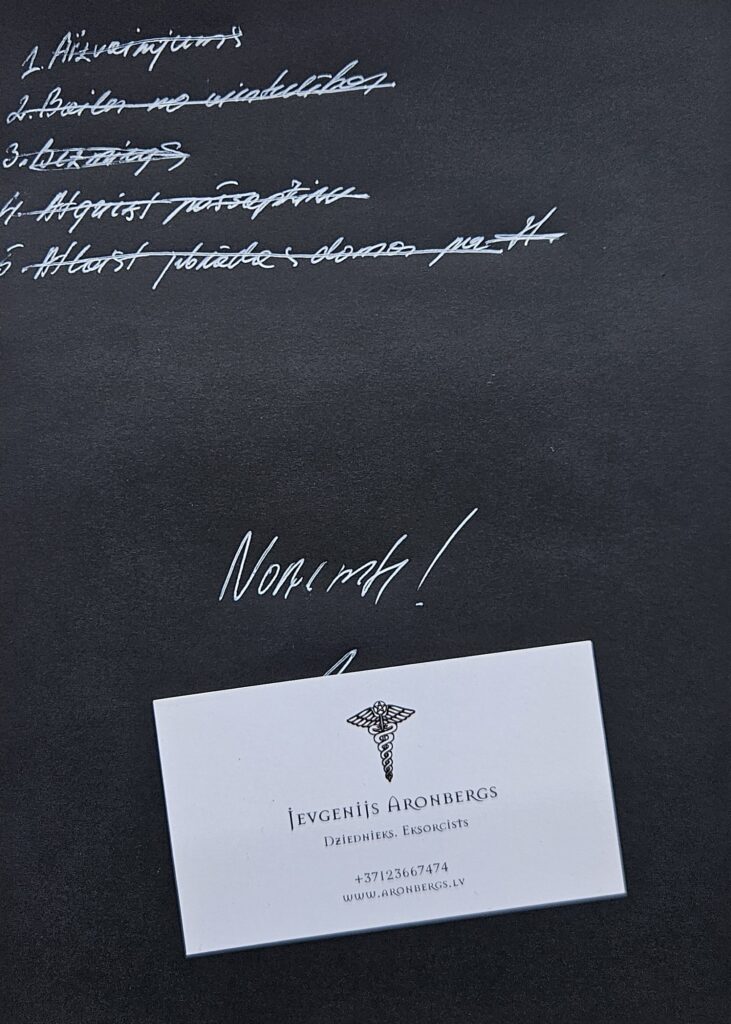 1. Aizvainojums
2. Bailes no vientulības
3. Bizness
4. Atgūst pašapziņu
5 Atlaist domas par H.
Noņemts!
Jevgenijs Aronbergs
Dziednieks. Eksorcists
+37123667474
www.aronbergs.lv